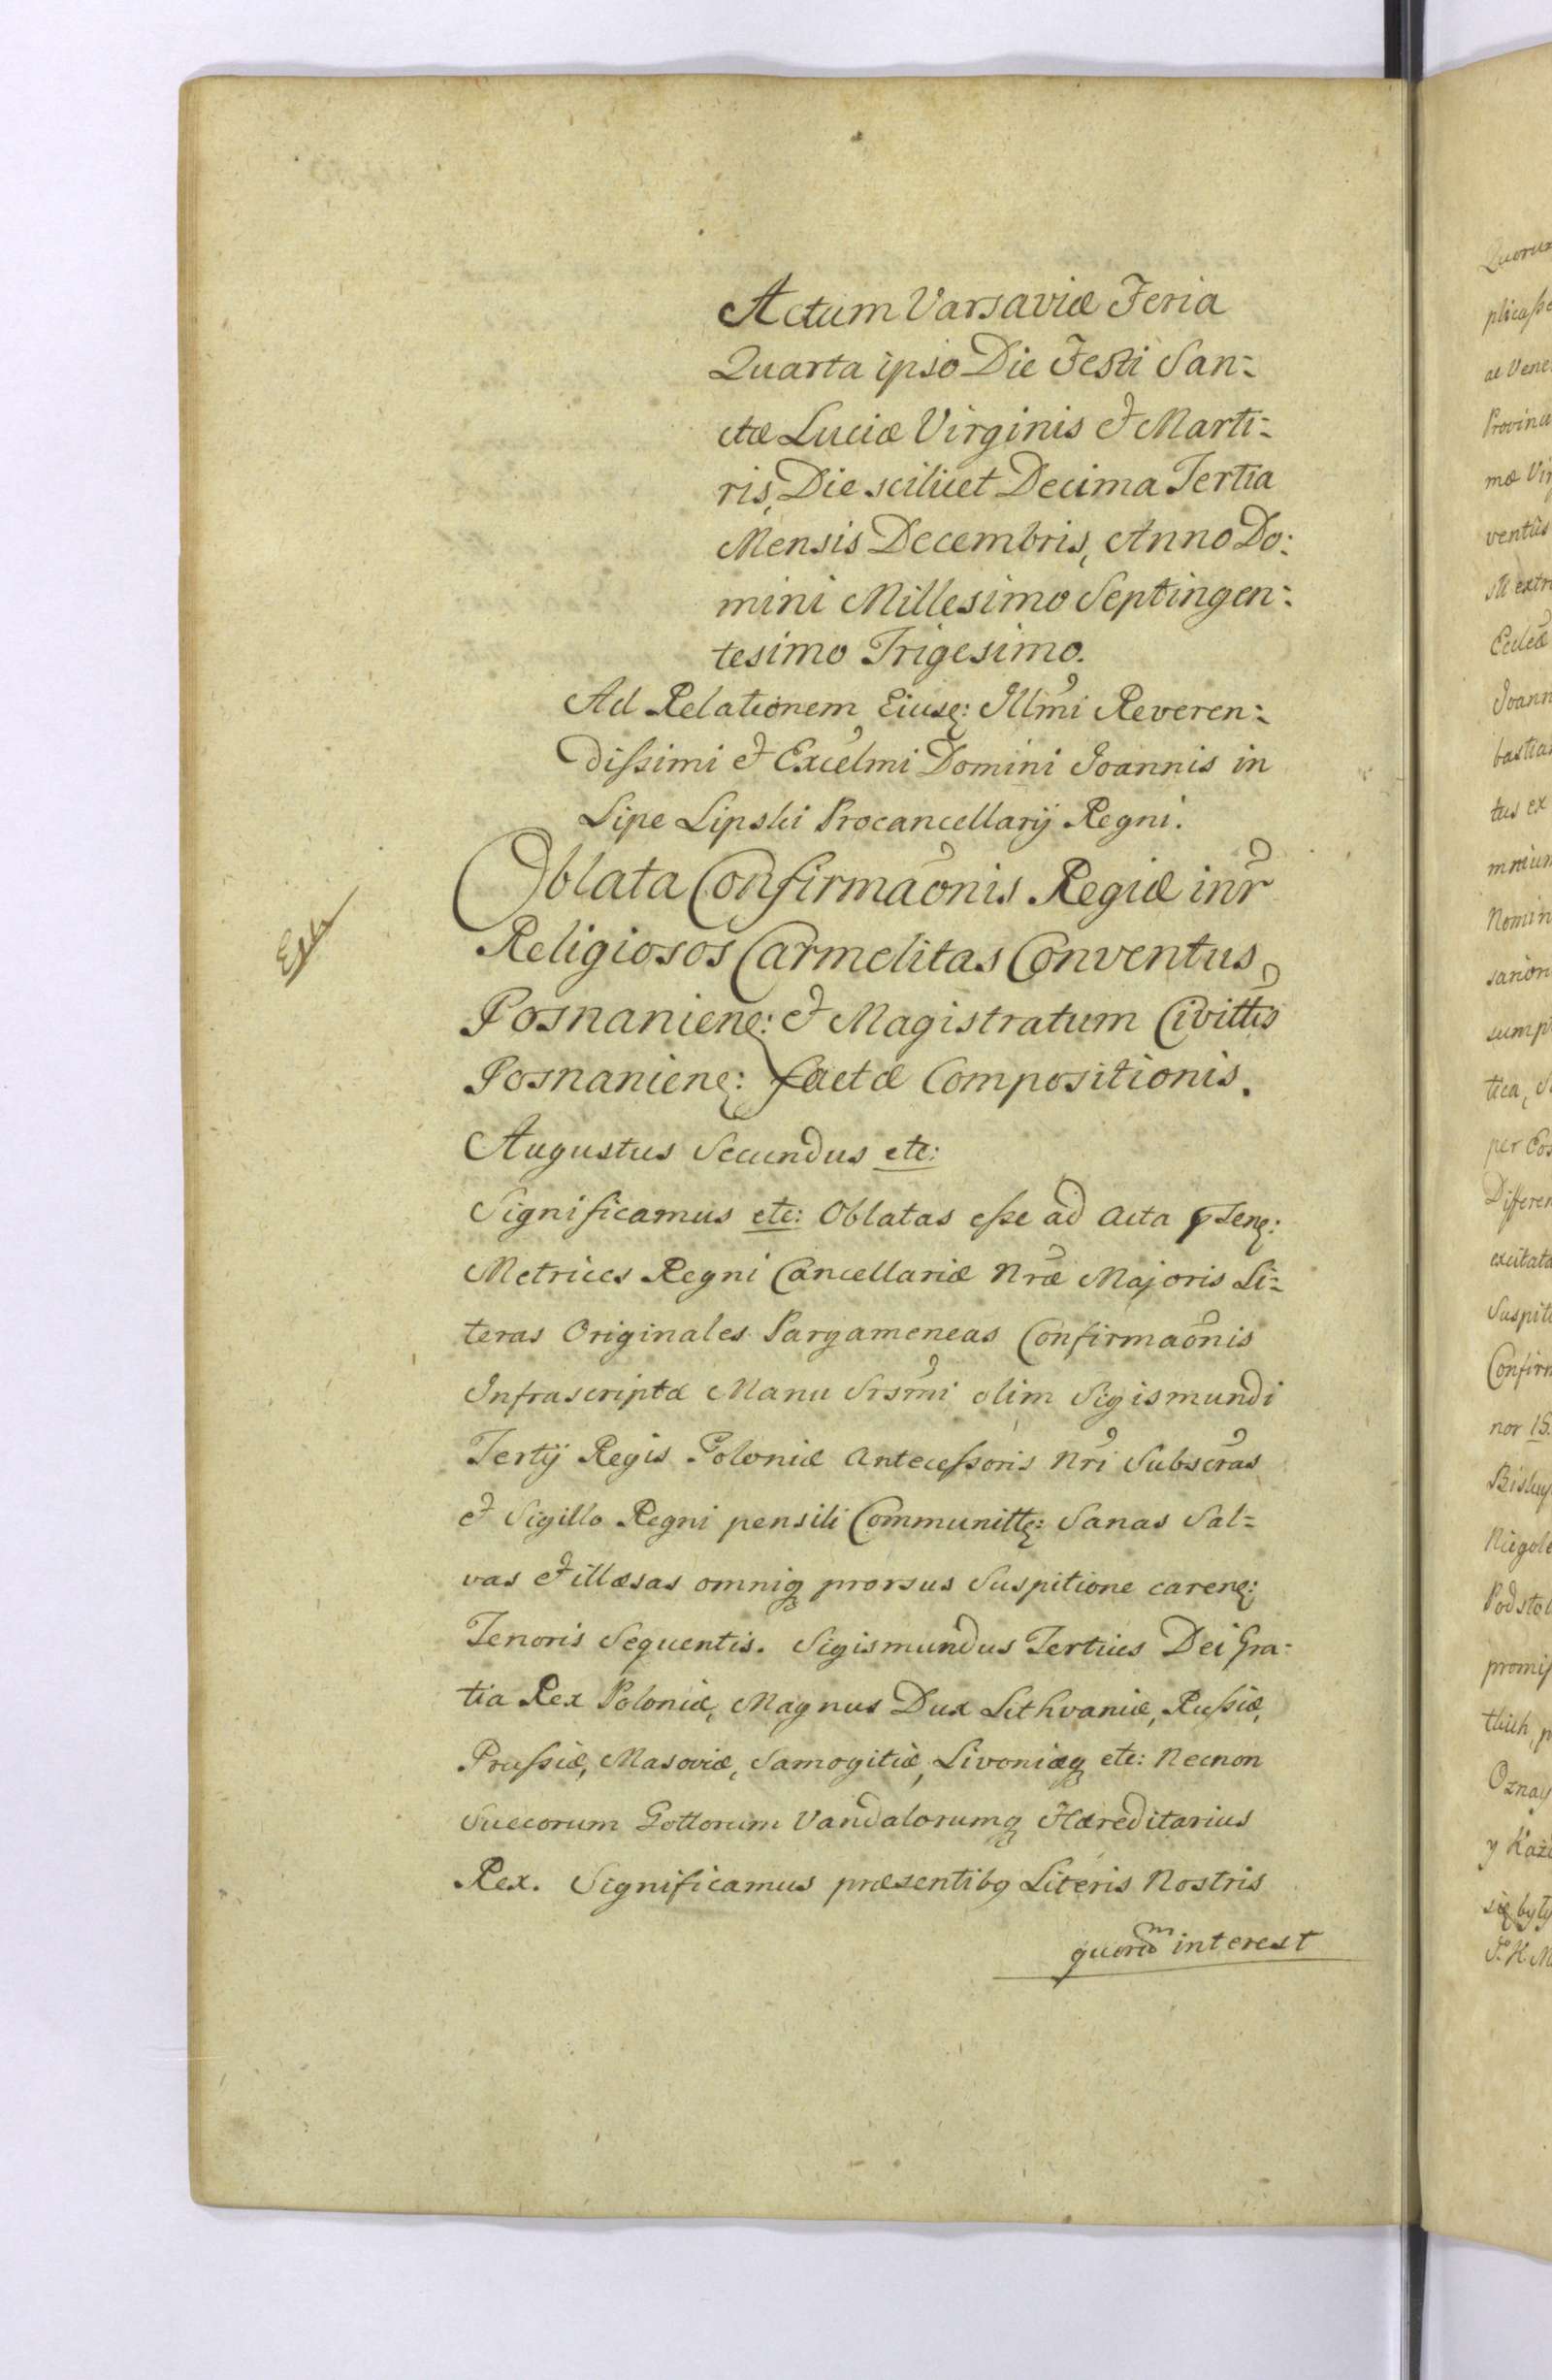 Actum Varsaviæ Feria
Quarta ipso Die Festi San=
ctæ Luciæ Virginis et Marti=
ris, Die scilicet Decima Tertia
Mensis Decembris, Anno Do:
mini Millesimo Septingen:
tesimo Trigesimo.
Ad Relationem Eiusq: Illmi Reveren=
dissimi et Excelmi Domini Joannis in
Lipe Lipski Procancellarij Regni.
Oblata Confirmaonis Regiæ inr
Religiosos Carmelitas Conventus
Posnanienq: et Magistratum Civittis
Posnanienq: factæ Compositionis.
Augustus Secundus etc:
Significamus etc: Oblatas esse ad Acta pTenq:
Metrices Regni Cancellariæ Nræ Majoris Li=
teras Originales Pargameneas Confirmaonis
Infrascriptæ Manu Srsmi olim Sigismundi
Tertij Regis Poloniæ Antecessoris Nri Subscras
et Sigillo Regni pensili Communittq: Sanas Sal=
vas et illæsas omniq prorsus Suspitione carenq:
Tenoris Sequentis. Sigismundus Tertius Dei Gra=
tia Rex Poloniæ, Magnus Dux Lithvaniæ, Russiæ,
Prussiæ, Masoviæ, Samogitiæ, Livoniæq etc: Necnon
Suecorum Gottorum Vandalorumq Hæreditarius
Rex. Significamus præsentibq Literis Nostris
quorum interest
Quorum
plicasse
ac Vene
Provinci
mæ Vir
ventus
sit extr
Eccleæ
Joann
bastia
tus ex
mnium
Nomin
sanion
sump
tica, S
per Co
Differen
excitata
Suspit
Confirm
nor 15.
Biskup
Niegole
Podstol
promis
tkich, p
Oznay
y Kaz
się były